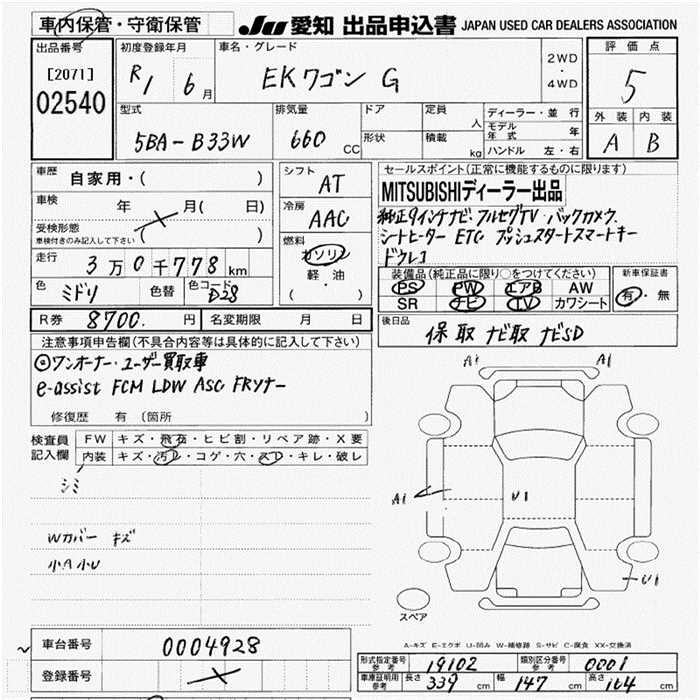 車内保管・守衛保管
JU 愛知 出品申込書 JAPAN USED CAR DEALERS ASSOCIATION
出品番号
[2071]
02540
初度登録年月
R1 6月
車名・グレード
EKワゴン G
2WD
・
4WD
評価点
5
外装 内装
A B
型式
5BA-B33W
排気量
660 CC
ドア
形状
定員 人
積載 kg
ディーラー・並行
モデル年式 年
ハンドル 左・右
車歴 自家用・( )
車検 年 月( 日)
受検形態
車検付きのみ記入して下さい ( )
走行 3万0千778km
色 ミドリ 色替 色コード D28
シフト AT
冷房 AAC
燃料
ガソリン
軽・油
( )
セールスポイント(正常に機能するものに限ります)
MITSUBISHIディーラー出品
純正9インチナビ・フルセグTV・バックカメラ
シートヒーター ETC プッシュスタートスマートキー
ドラレコ
装備品(純正品に限り○をつけてください)
PS PW エアB AW
SR ナビ TV カワシート
新車保証書
有・無
R券 8700.円 名変期限 月 日
後日品 保取 ナビ取 ナビSD
注意事項申告欄(不具合内容等は具体的に記入して下さい)
◎ワンオーナー・ユーザー買取車
e-assist FCM LDW ASC FRソナー
修復歴 有(箇所 )
検査員
記入欄
FW キズ・飛石・ヒビ割・リペア跡・X要
内装 キズ・汚レ・コゲ・穴・スレ・キレ・破レ
シミ
Wカバー キズ
小A小U
A1 A1
A1 U1
U1
スペア
A-キズ E-エクボ U-凹み W-補修跡 S-サビ C-腐食 XX-交換済
車台番号 0004928
登録番号
型式指定番号 参考 19102 類別区分番号 参考 0001
車庫証明用 参考 長さ 339 cm 幅 147 cm 高さ 164 cm